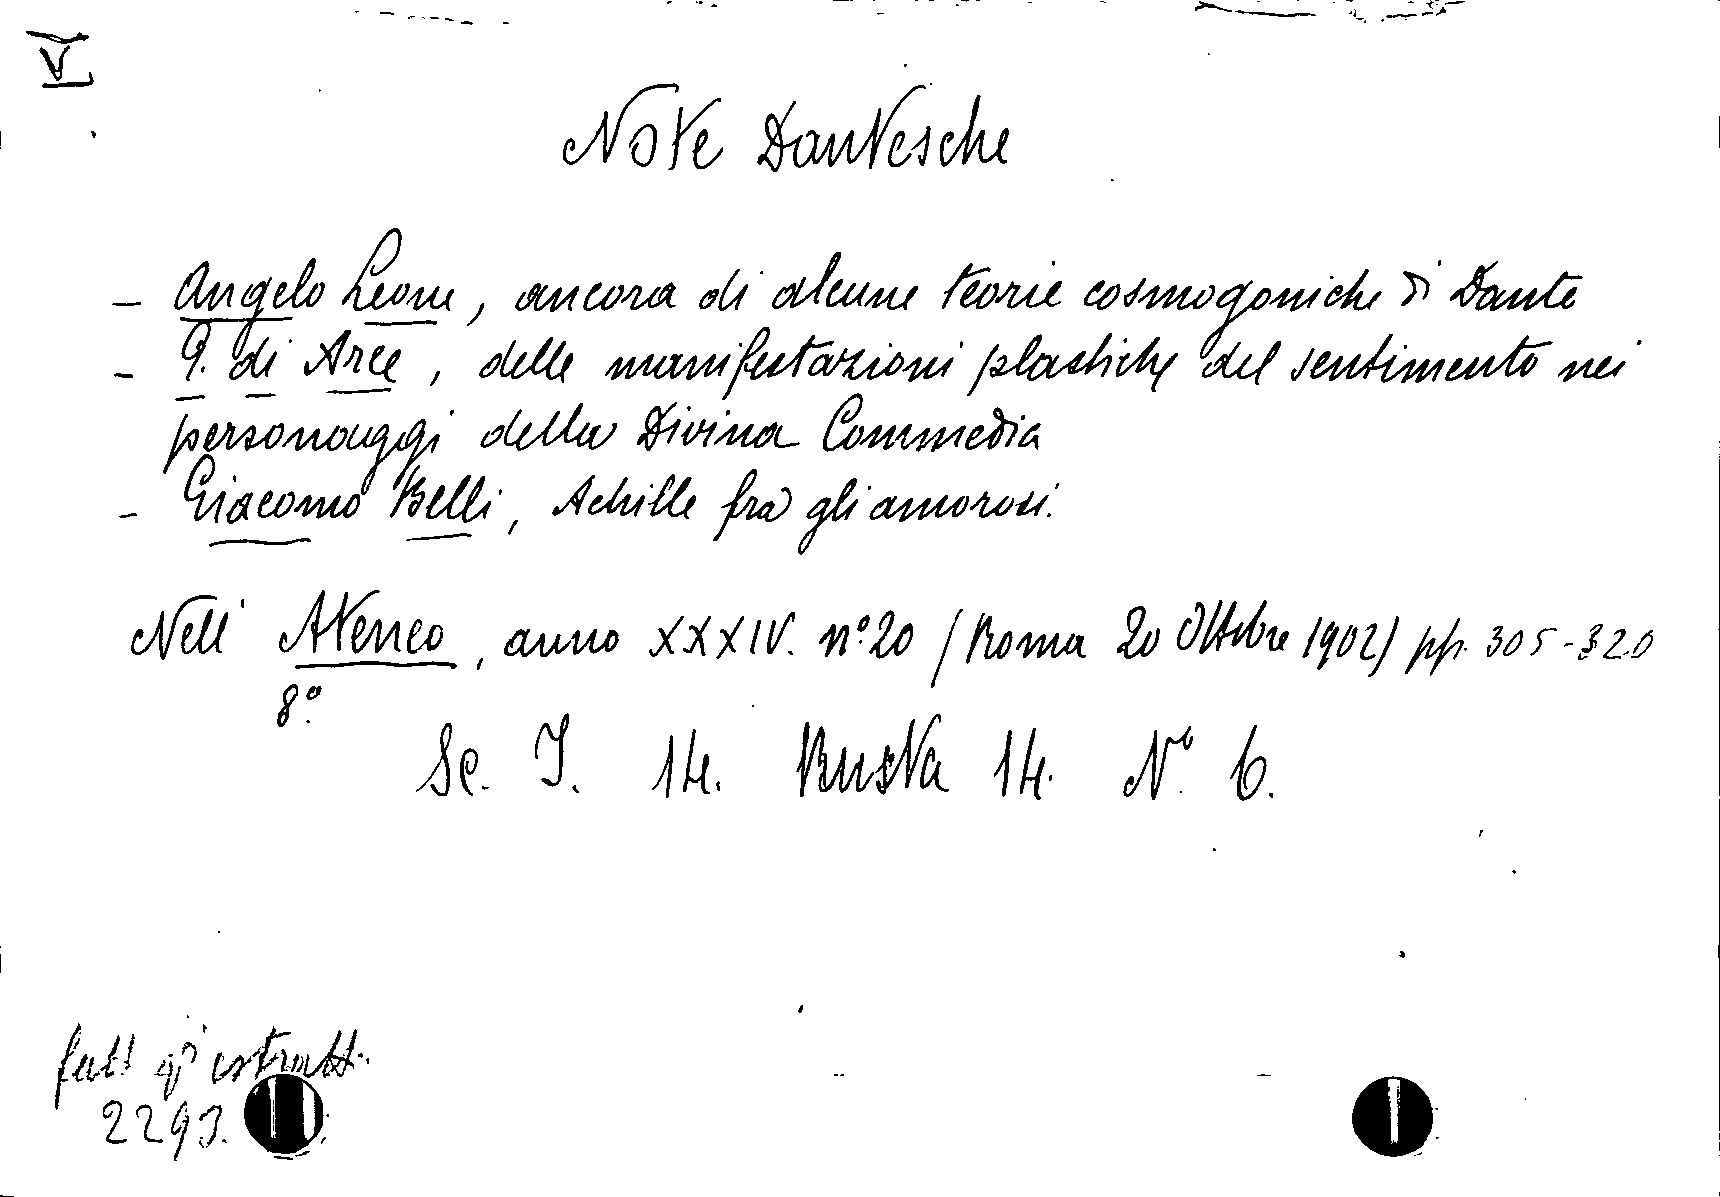 V
Note Dantesche
- Angelo Leone, ancora di alcune teorie cosmogoniche di Dante
- G. di Arce, delle manifestazioni plastiche del sentimento nei
personaggi della Divina Commedia
- Giacomo Belli, Achille fra gli amorosi.
Nell' Ateneo, anno XXXIV. nº 20 (Roma 20 Ottobre 1902) pp. 305-320
8º
Sc. I. 14. Busta 14. Nº 6.
estratti
2293.